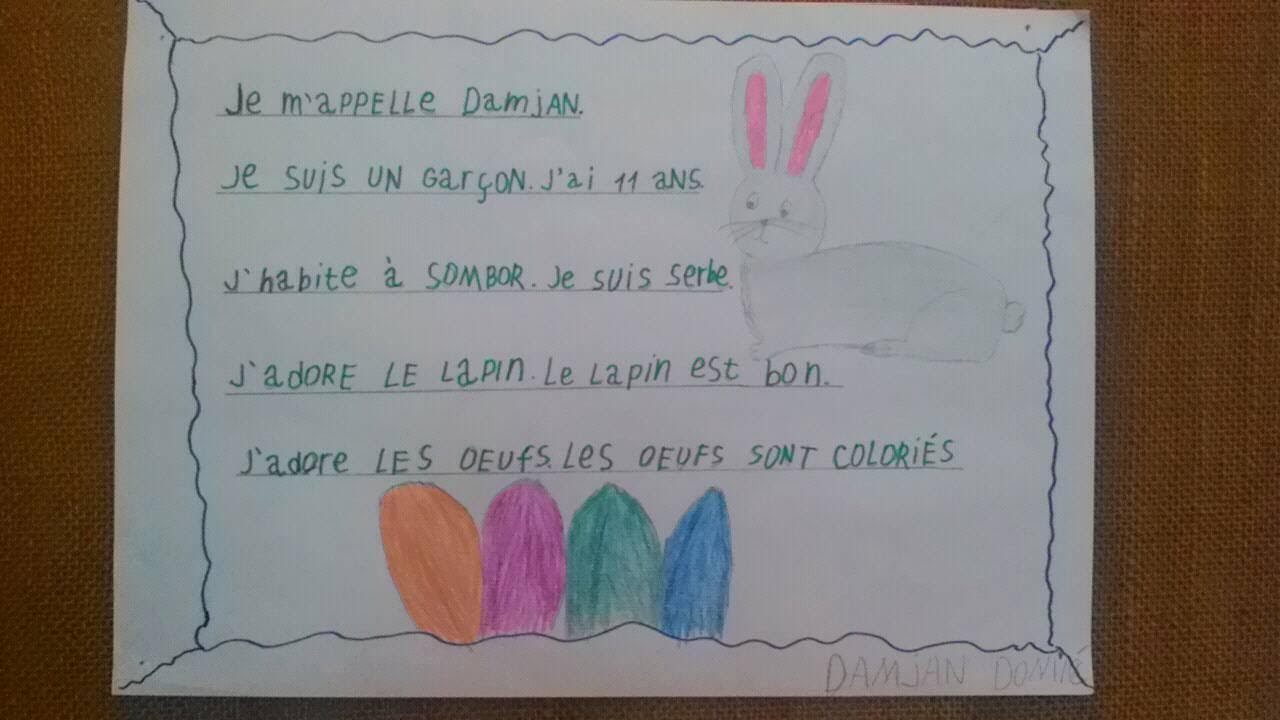 Je m'aPPELLe DamjAN.
Je suis UN Garçon. J'ai 11 aNS.
J'habite à SOMBOR. Je suis serbe.
J'adORE LE LaPIN. Le Lapin est bon.
J'adore LES OEUfS. Les OEUFS SONT COLORiÉS
DAMJAN